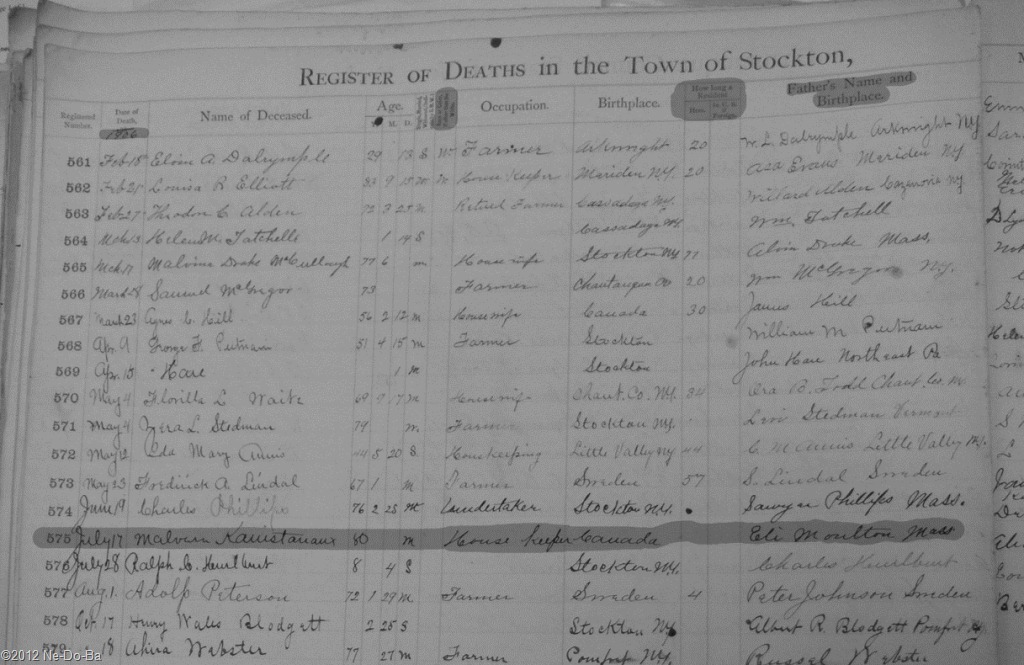 REGISTER OF DEATHS in the Town of Stockton,
Registered Number. Date of Death, 1906 Name of Deceased. Age. Y. M. D. Occupation. Birthplace. How long a Resident Here. Father's Name and Birthplace.
561 Feb 18 Elvin A. Dalrymple 29 13 S Farmer Arkwright 20 W. L. Dalrymple Arkwright NY
562 Feb 25 Louisa R Elliott 83 9 15 House Keeper Meriden N.Y. 20 Asa Evans Meriden NY
563 Feb 27 Theodon C Alden 72 3 25 Retired Farmer Cassadaga NY. Willard Alden NY
564 Mch 13 Helen M. Tatchell 1 19 S Cassadaga NY. Wm. Tatchell
565 Mch 17 Malvina Drake McCullough 77 6 m House wife Stockton NY 71 Alvin Drake Mass.
566 March 8 Samuel McGregor 73 Farmer Chautauqua Co 20 Wm McGregor NY.
567 March 23 Agnes C. Hill 56 2 12 m Housewife Canada 30 James Hill
568 Apr. 9 George F. Putnam 51 4 15 m Farmer Stockton William M Putnam
569 Apr. 15 Hare 1 m Stockton John Hare Northeast Pa
570 May 4 Florilla L Waite 69 9 17 m Housewife Chaut. Co. N.Y. 34 Ora B. Todd Chaut. Co.
571 May 4 L. Stedman 79 m. Farmer Stockton NY. Levi Stedman Vermont
572 May 12 Ida Mary Annis 44 5 20 S Housekeeping Little Valley NY 44 C. M Annis Little Valley N.Y.
573 May 23 Fredrick A Lindal 67 1 m Farmer Sweden 57 S. Lindal Sweden
574 June 19 Charles Phillips 76 2 28 M Undertaker Stockton N.Y. Sawyer Phillips Mass.
575 July 17 Malvern 80 m House keeper Canada Eli Moulton Mass
576 July 28 Ralph C. Hurlburt 8 4 S Stockton N.Y. Charles Hurlburt
577 Aug. 1. Adolf Peterson 72 1 27 M Farmer Sweden 4 Peter Johnson Sweden
578 Oct 17 Henry Wales Blodgett 2 25 S Stockton NY Albert R. Blodgett Pomfret NY
579 18 Webster 77 27 m Farmer Pomfret N.Y. Russel Webster
©2012 Ne-Do-Ba